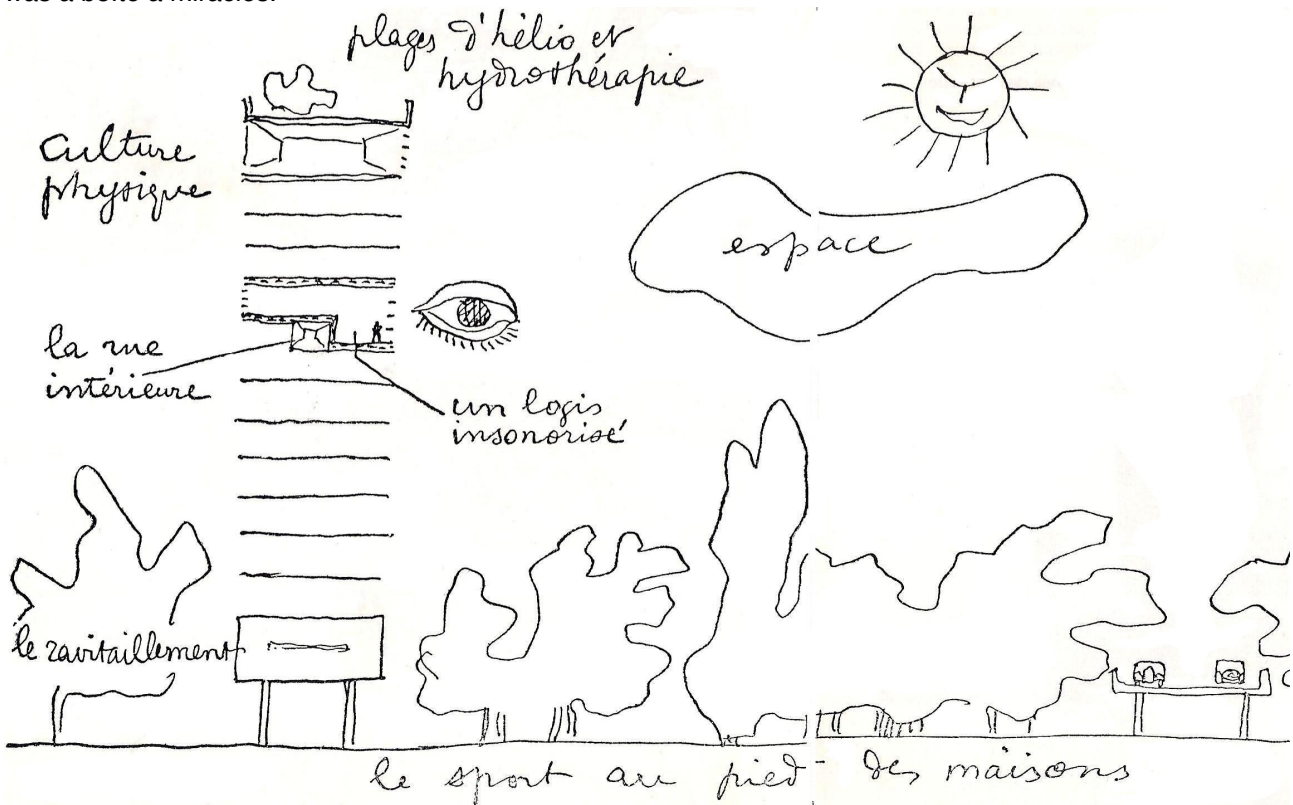 was a boîte à miracles.
plages d'hélio et
hydrothérapie
culture
physique
espace
la rue
intérieure
un logis
insonorisé
le ravitaillement
le sport au pied des maisons